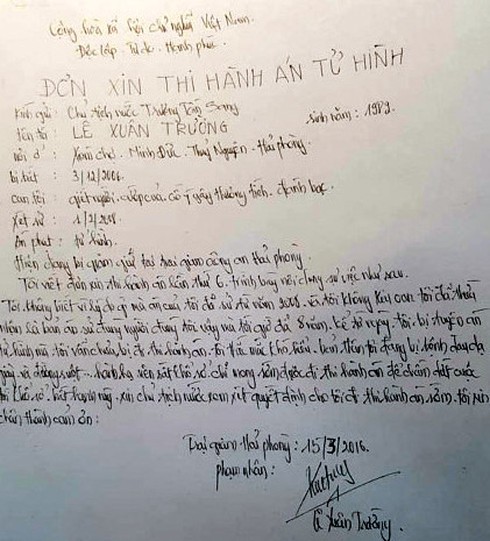 Cộng hòa xã hội chủ nghĩa Việt Nam.
Độc lập. Tự do. Hạnh phúc.
ĐƠN XIN THI HÀNH ÁN TỬ HÌNH
Kính gửi: Chủ tịch nước Trương Tấn Sang
tên tôi: LÊ XUÂN TRƯỜNG sinh năm: 1989.
nơi ở: Xóm chợ. Minh Đức. Thuỷ Nguyên. Hải phòng.
bị bắt: 3/12/2006.
can tội: giết người. cướp của. cố ý gây thương tích. đánh bạc.
Xét xử: 1/2/2008.
Án phạt: tử hình.
Hiện đang bị quản giữ tại trại giam công an Hải phòng.
Tôi viết đơn xin thi hành án lần thứ 6. trình bày nội dung sự việc như sau.
Tôi không biết vì lý do gì mà án của tôi đã xử từ năm 2008. và tôi không kêu oan tôi đã thừa
nhận là bản án xử đúng người đúng tội vậy mà tới giờ đã 8 năm. kể từ ngày. tôi. bị tuyên án
tử hình mà. tôi vẫn chưa bị đi thi hành án. tôi thắc mắc khó hiểu. bản thân tôi đang bị bệnh đau dạ
dày và đường ruột... hành hạ nên rất khổ sở. chỉ mong sớm được đi thi hành án để chấm dứt cuộc
khổ sở. bất hạnh này. xin chủ tịch nước xem xét quyết định cho tôi đi thi hành án sớm. tôi xin
chân thành cảm ơn:
Trại giam Hải phòng: 15/3/2016.
phạm nhân:
Lê Xuân Trường.